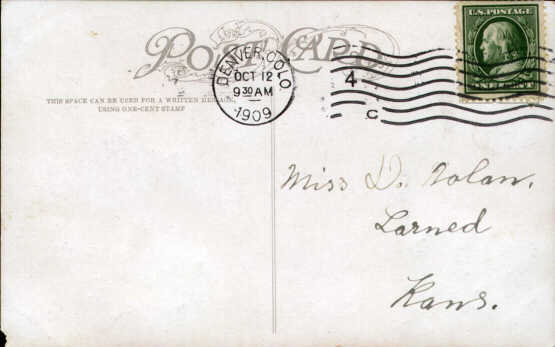 POST CARD
THIS SPACE CAN BE USED FOR A WRITTEN MESSAGE,
USING ONE-CENT STAMP
DENVER, COLO.
OCT 12
9 30 AM
1909
4
C
U.S. POSTAGE
ONE CENT
Miss D. Nolan.
Larned
Kans.